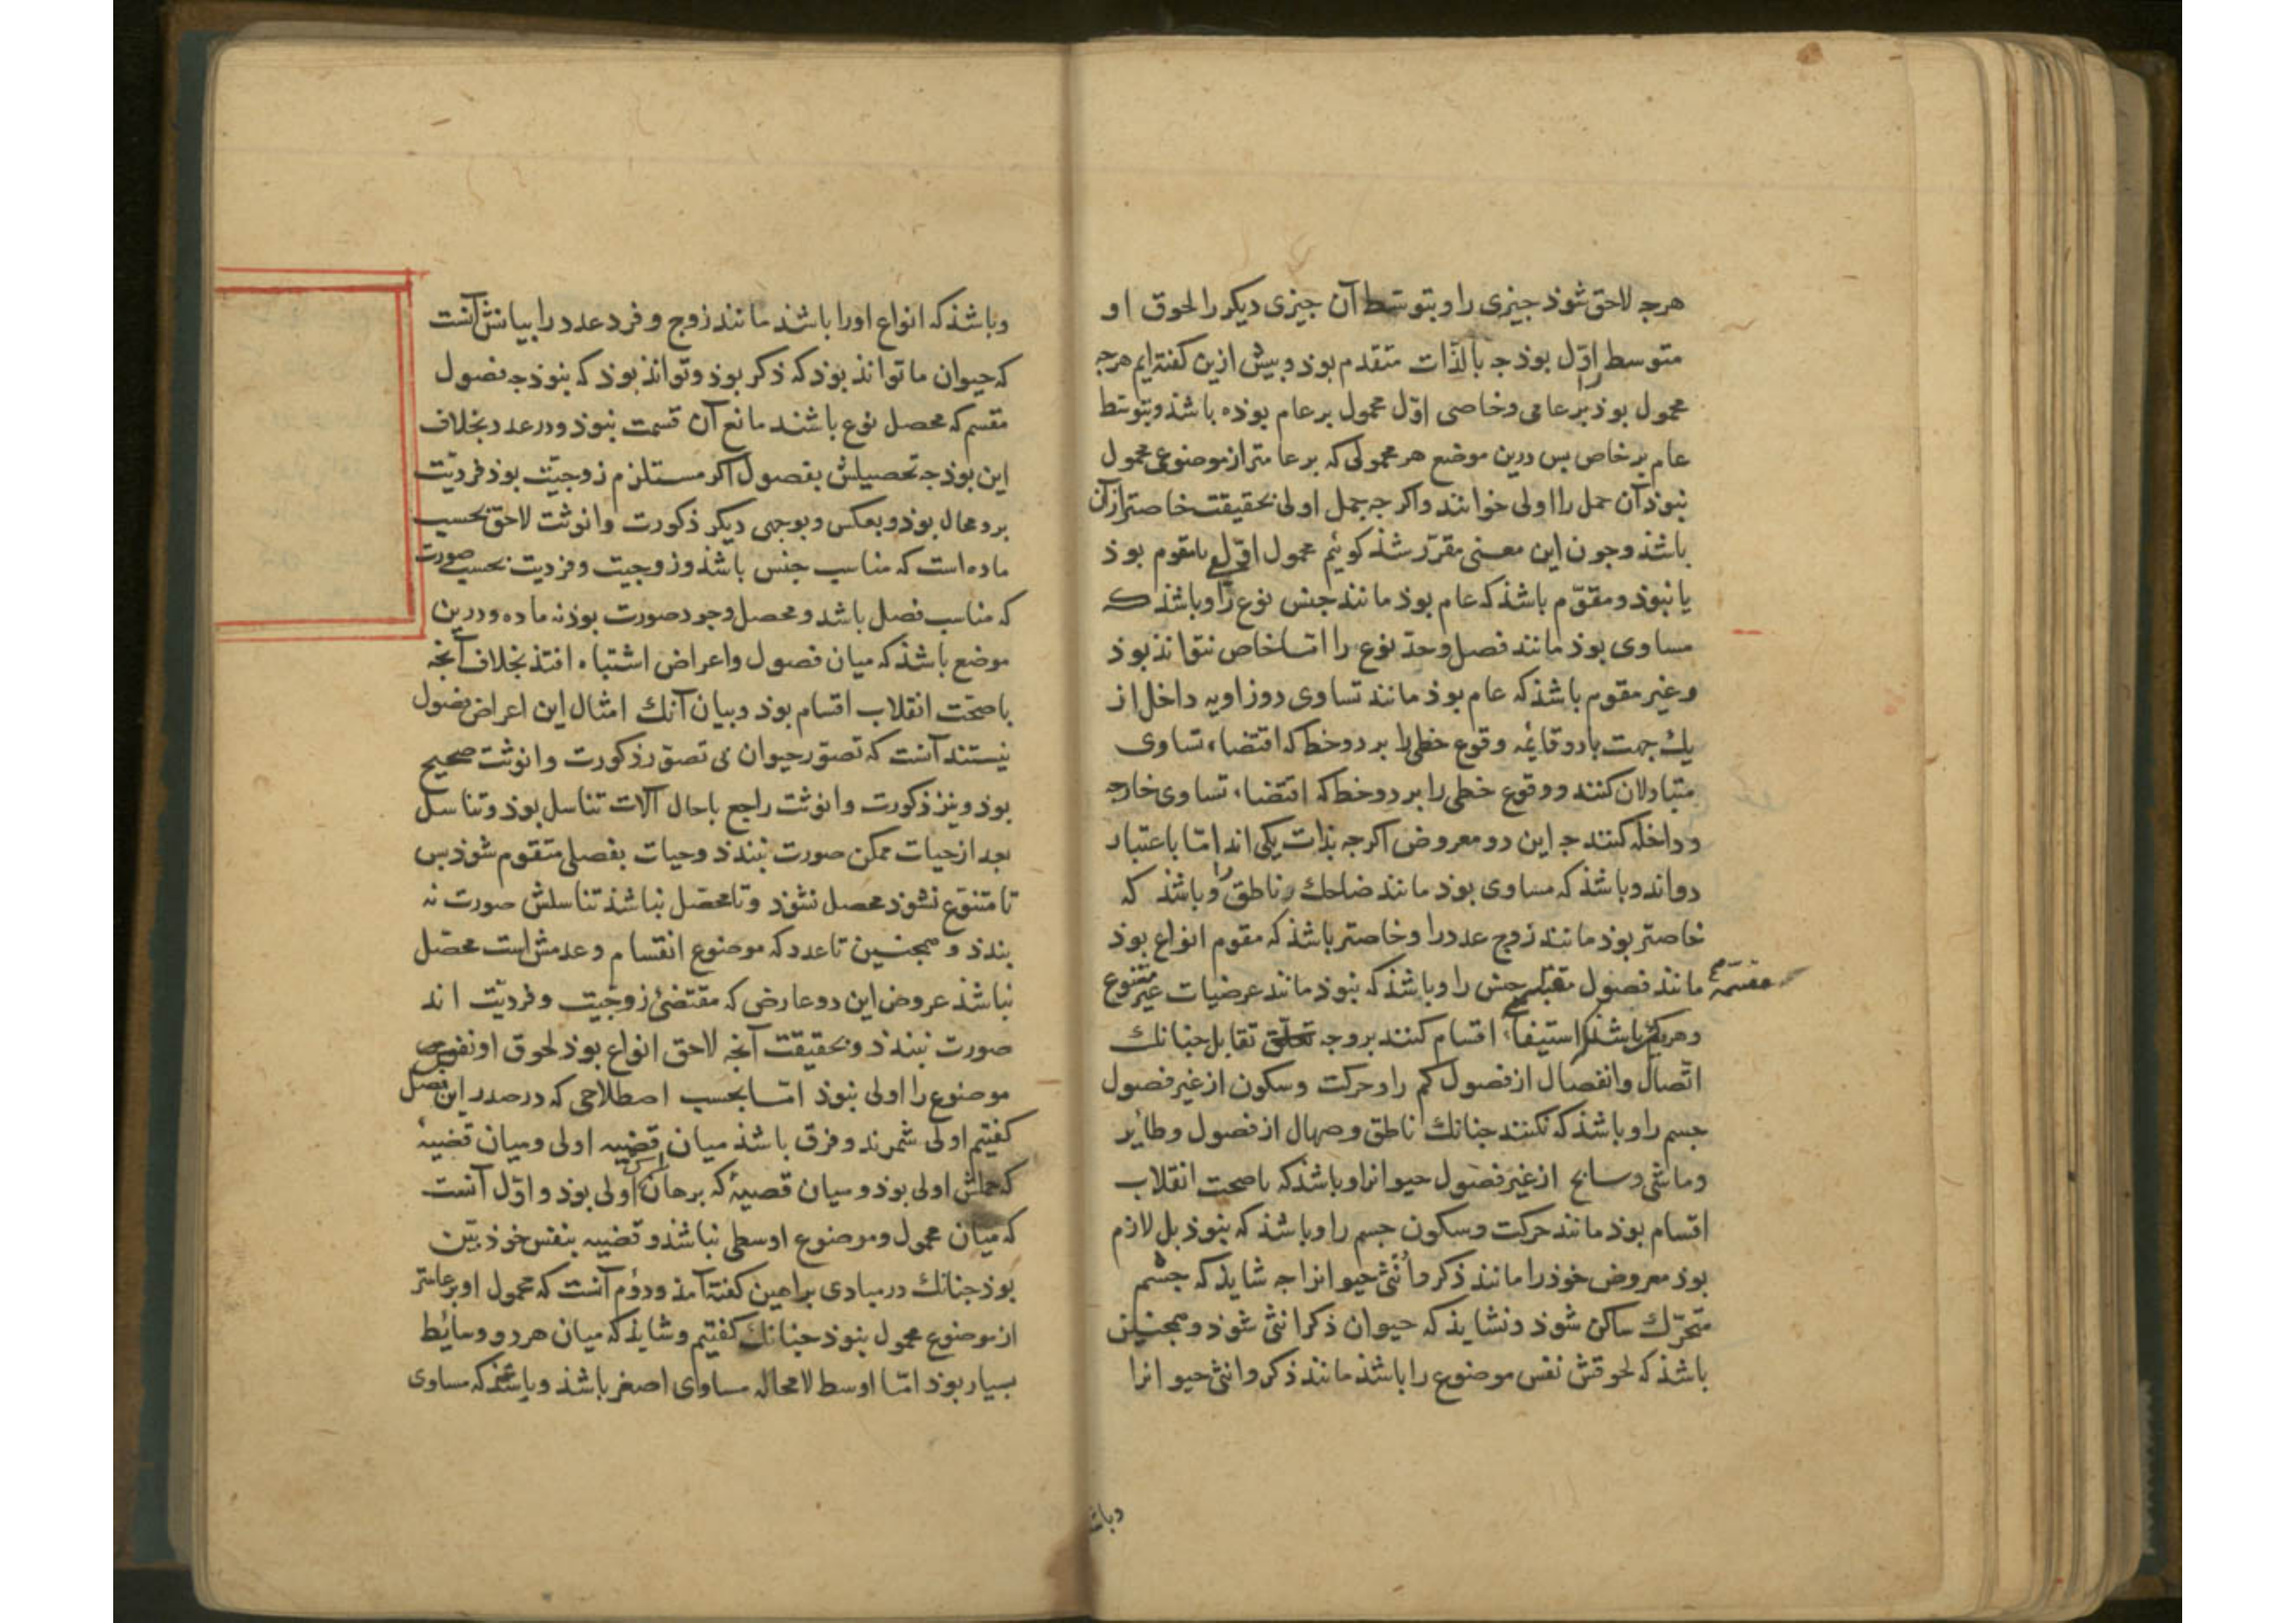 هرجه لاحق شوذ جیزی را و بتوسط آن جیزی دیکر را لحوق او
متوسط را اوّل بوذ جه بالذّات متقدم بوذ و بیش ازین کفته‌ایم هرجه
محمول بوذ بر عامی و خاصی اوّل محمول بر عام بوذه باشذ و بتوسّط
عام بر خاص بس درین موضع هر محمولی که بر عامتر از موضوع محمول
نبوذ آن حمل را اولی خوانند و اکر جه حمل اولی بحقیقت خاصتر از آن
باشذ و جون این معنی مقرّر شذ کوئیم محمول اوّلی یا مقوم بوذ
یا نبوذ و مقوّم باشذ که عام بوذ مانند جنس نوع را و باشذ که
مساوی بوذ مانند فصل و حدّ نوع را امّا خاص نتواند بوذ
و غیر مقوم باشذ که عام بوذ مانند تساوی دو زاویه داخل از
یك جهت با دو قایٔمه وقوع خطی را بر دو خط که اقتضاء تساوی
متبادلان کنند و وقوع خطی را بر دو خط که اقتضاء تساوی خارجه
و داخله کنند جه این دو معروض اکر جه بذات یکی اند امّا باعتبار
دو اند و باشذ که مساوی بوذ مانند ضاحك ناطق را و باشذ که
خاصتر بوذ مانند زوج عدد را و خاصتر باشذ که مقوم انواع بوذ
مانند فصول مقسمهٔ جنس را و باشذ که نبوذ مانند عرضیات غیر متنوع
و هر یکی باشذ که استیفاء اقسام کنند بر وجه تقابل جنانك
اتّصال و انفصال از فصول کم را و حرکت و سکون از غیر فصول
جسم را و باشذ که نکنند جنانك ناطق و صهال از فصول و طایٔر
و ماشی و سابح از غیر فصول حیوانرا و باشذ که با صحت انقلاب
اقسام بوذ مانند حرکت و سکون جسم را و باشذ که نبوذ بل لازم
بوذ معروض خوذ را مانند ذکر و أنثی حیوانرا جه شایذ که جسم
متحرّك ساکن شوذ و نشایذ که حیوان ذکر انثی شوذ و همجنین
باشذ که لحوقش نفس موضوع را باشذ مانند ذکر و انثی حیوانرا
و باشذ که انواع او را باشذ مانند زوج و فرد عدد را بیانش آنست
که حیوان ما تواند بوذ که ذکر بوذ و تواند بوذ که نبوذ جه فصول
مقسم که محصل نوع باشند مانع آن قسمت نبوذ و در عدد بخلاف
این بوذ جه تحصیلش بفصول اکر مستلزم زوجیّت بوذ فردیّت
برو محال بوذ و بعکس و بوجهی دیکر ذکورت و انوثت لاحق بحسب
ماده است که مناسب جنس باشذ و زوجیت و فردیت بحسب صورت
که مناسب فصل باشد و محصل وجود صورت بوذ نه ماده و درین
موضع باشذ که میان فصول و اعراض اشتباه افتذ بخلاف آنجه
با صحّت انقلاب اقسام بوذ و بیان آنك امثال این اعراض فصول
نیستند آنست که تصوّر حیوان بی تصوّر ذکورت و انوثت صحیح
بوذ و نیز ذکورت و انوثت راجع با حال آلات تناسل بوذ و تناسل
بعد از حیات ممکن صورت نبندذ و حیات بفصلی متقوم شوذ بس
تا متنوّع نشوذ محصل نشوذ و تا محصّل نباشذ تناسلش صورت نه
بندذ و همجنین تا عدد که موضوع انقسام و عدمش است محصّل
نباشذ عروض این دو عارض که مقتضیٔ زوجیّت و فردیّت اند
صورت نبندذ و بحقیقت آنجه لاحق انواع بوذ لحوق او نفس
موضوع را اولی نبوذ امّا بحسب اصطلاحی که در صدر این فصل
کفتیم اولی شمرند و فرق باشذ میان قضیه اولی و میان قضیهٔ
که حملش اولی بوذ و میان قضیهٔ که برهان اولی بوذ و اوّل آنست
که میان محمول و موضوع اوسطی نباشذ و قضیه بنفس خوذ بیّن
بوذ جنانك در مبادی براهین کفته آمذ و دوّم آنست که محمول او بر عامتر
از موضوع محمول نبوذ جنانك کفتیم و شایذ که میان هر دو وسایٔط
بسیار بوذ امّا اوسط لا محاله مساوای اصغر باشذ و باشذ که مساوی